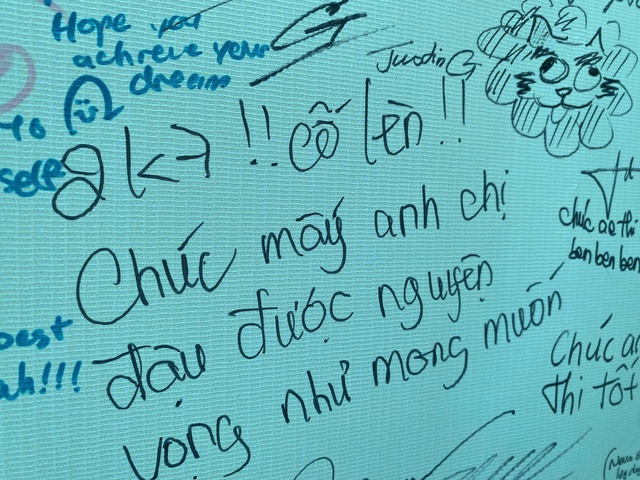 Hope you
achieve your
dream
To
self
JustinG
2k7 !! cố lên !!
Chúc mấy anh chị
đậu được nguyện
vọng như mong muốn
best
ah!!!
chúc ae thi
ben ben ben
Chúc a
thi tốt